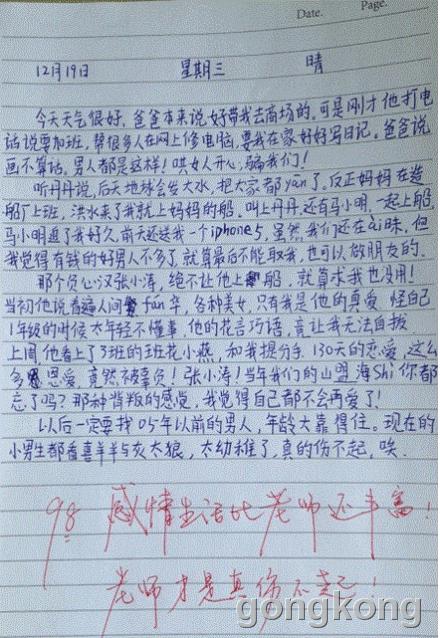 Date.
Page.
12月19日 星期三 晴
今天天气很好,爸爸本来说好带我去商场的。可是刚才他打电
话说要加班,帮很多人在网上修电脑,要我在家好好写日记。爸爸说
画不算话。男人都是这样!哄女人开心,骗我们!
听丹丹说,后天地球会发大水,把大家都yān了,反正妈妈在造
船厂上班,洪水来了我就上妈妈的船。叫上丹丹,还有马小明,一起上船,
马小明追了我好久,前天还送我一个iphone5,虽然我们还在ài昧,但
我觉得有钱的好男人不多了,就算最后不能取我,也可以做朋友的。
那个负心汉张小涛,绝不让他上船,就算求我也没用!
当初他说看遍人间fán华,各种美女,只有我是他的真爱,怪自己
1年级的时候太年轻不懂事,他的花言巧语,竟让我无法自拔
上周他看上了3班的班花小燕,和我提分手,130天的恋爱,这么
多恩爱,竟然被辜负!张小涛!当年我们的山盟海Shi你都
忘了吗?那种背叛的感觉,我觉得自己都不会再爱了!
以后一定要找05年以前的男人,年龄大靠得住。现在的
小男生都看喜羊羊与灰太狼,太幼稚了,真的伤不起,唉
98 感情生活比老师还丰富!
老师才是真伤不起!
gongkong